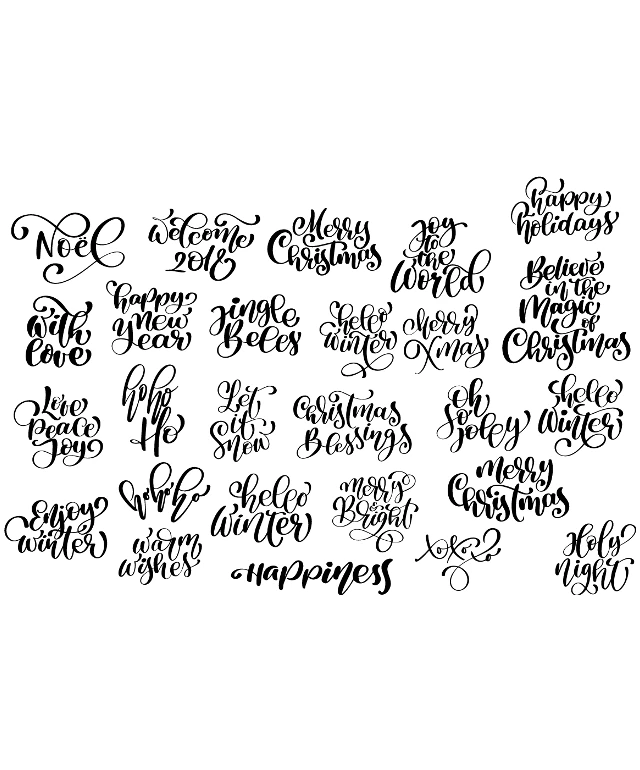 Noël
welcome
2018
Merry
Christmas
Joy
to
the
World
happy
holidays
with
love
happy
new
year
jingle
Bells
hello
winter
merry
Xmas
Believe
in the
Magic
of
Christmas
Love
Peace
Joy
ho ho
Ho
Let
it
Snow
Christmas
Blessings
Oh
So
jolly
hello
Winter
Enjoy
winter
ho ho ho
warm
wishes
hello
Winter
merry
&
Bright
merry
Christmas
Happiness
xoxo
Holy
night